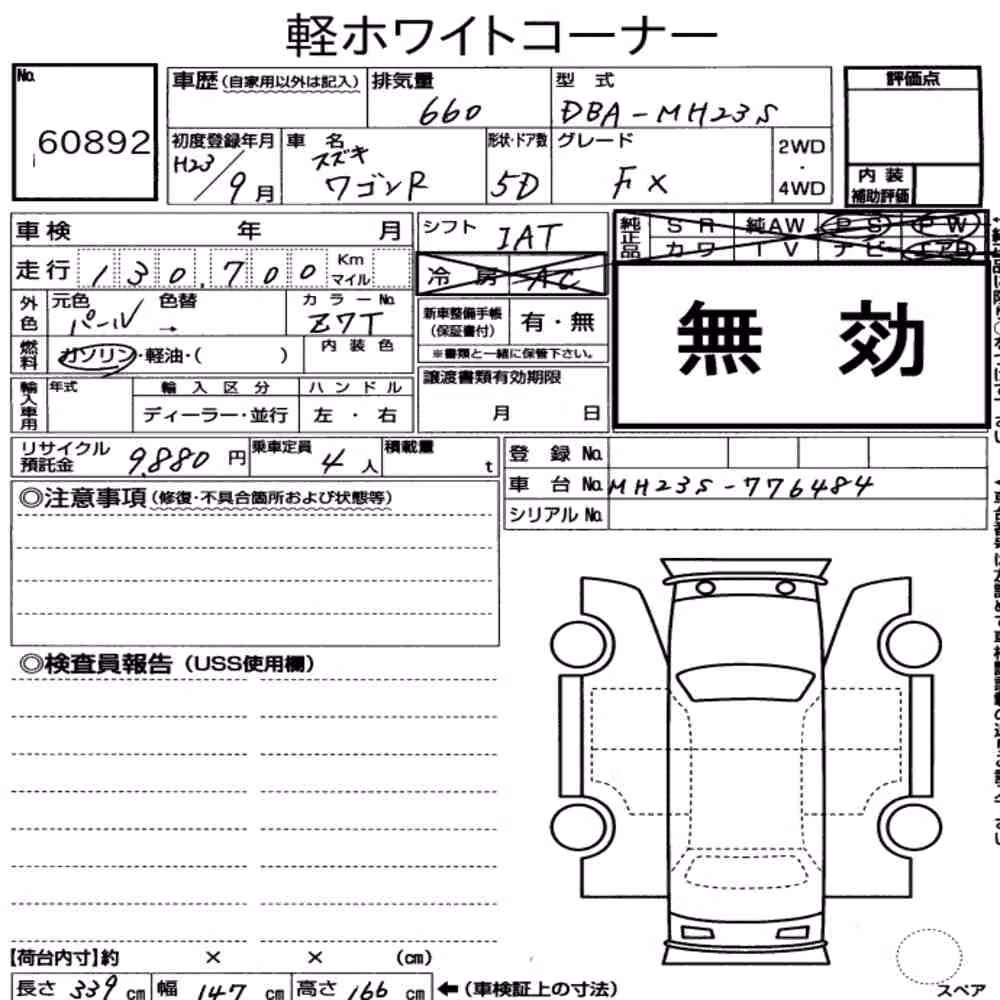 軽ホワイトコーナー
No.
60892
車歴(自家用以外は記入)
排気量
660
型式
DBA-MH23S
評価点
初度登録年月
H23/9月
車名
スズキ
ワゴンR
形状・ドア数
5D
グレード
FX
2WD
・
4WD
内装
補助評価
車検 年 月
シフト
IAT
純正品
SR 純AW PS PW
カワ TV ナビ エアB
走行 130,700 Km マイル
冷房 AC
無効
外色
元色 パール
色替 →
カラーNo.
Z7T
新車整備手帳
(保証書付)
有・無
※書類と一緒に保管下さい。
燃料
ガソリン・軽油・( )
内装色
輸入車用
年式
輸入区分
ディーラー・並行
ハンドル
左・右
譲渡書類有効期限
月 日
リサイクル
預託金
9,880円
乗車定員
4人
積載量
t
登録No.
車台No. MH23S-776484
シリアルNo.
◎注意事項(修復・不具合箇所および状態等)
◎検査員報告(USS使用欄)
【荷台内寸】約 × × (cm)
長さ 339 cm 幅 147 cm 高さ 166 cm ←(車検証上の寸法)
スペア